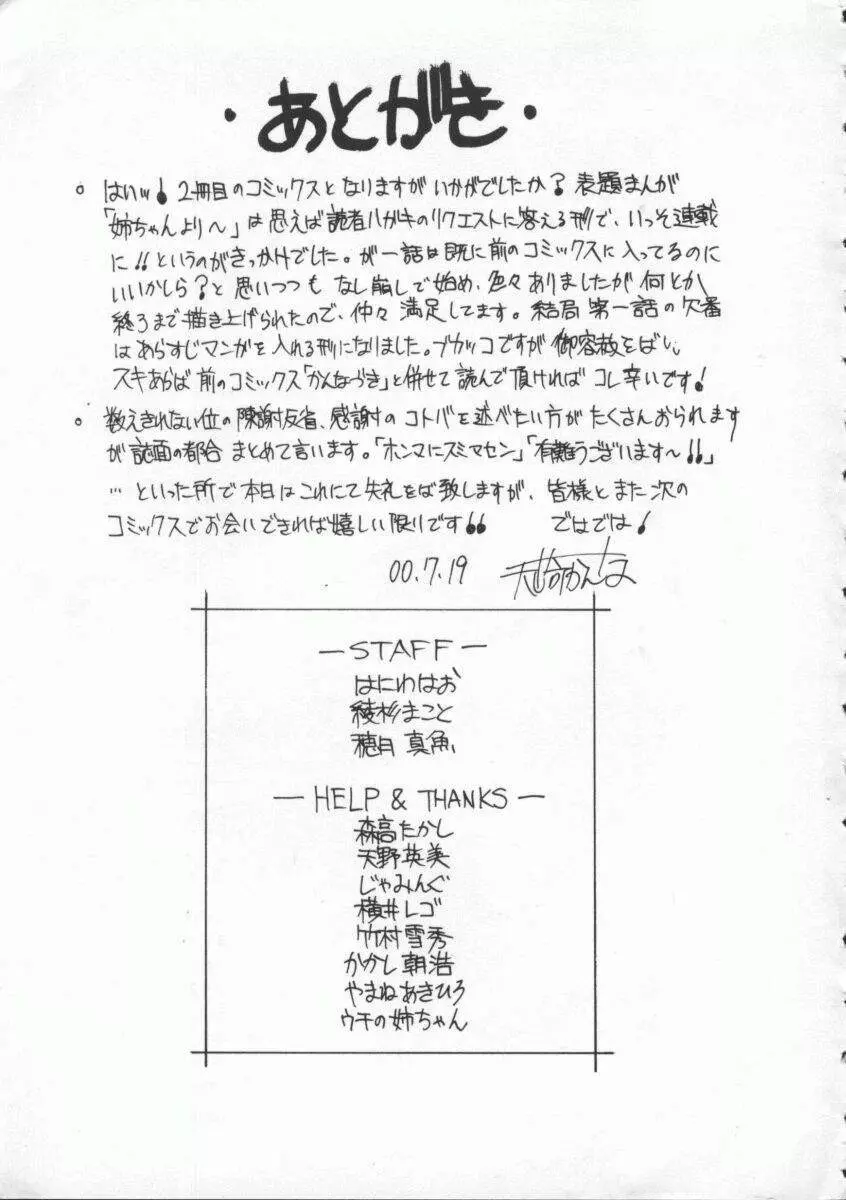 ・あとがき・
○ はいッ！2冊目のコミックスとなりますがいかがでしたか？表題まんが
「姉ちゃんより〜」は思えば読者ハガキのリクエストに答える形で、いっそ連載
に！！というのがきっかけでした。が一話は既に前のコミックスに入ってるのに
いいかしら？と思いつつもなし崩しで始め、色々ありましたが何とか
終了まで描き上げられたので、仲々満足してます。結局第一話の欠番
はあらすじマンガを入れる形になりました。ブカッコですが御容赦をばし、
スキあらば前のコミックス「かんなづき」と併せて読んで頂ければコレ幸いです！
○ 数えきれない位の陳謝反省、感謝のコトバを述べたい方がたくさんおられます
が誌面の都合まとめて言います。「ホンマにスミマセン」「有難うございます〜！！」
…といった所で本日はこれにて失礼をば致しますが、皆様とまた次の
コミックスでお会いできれば嬉しい限りです！！ ではでは！
00.7.19
－STAFF－
はにわはお
綾杉まこと
穂月真魚
－HELP & THANKS－
森高たかし
天野英美
じゃみんぐ
横井レゴ
竹村雪秀
かかし朝浩
やまねあきひろ
ウチの姉ちゃん